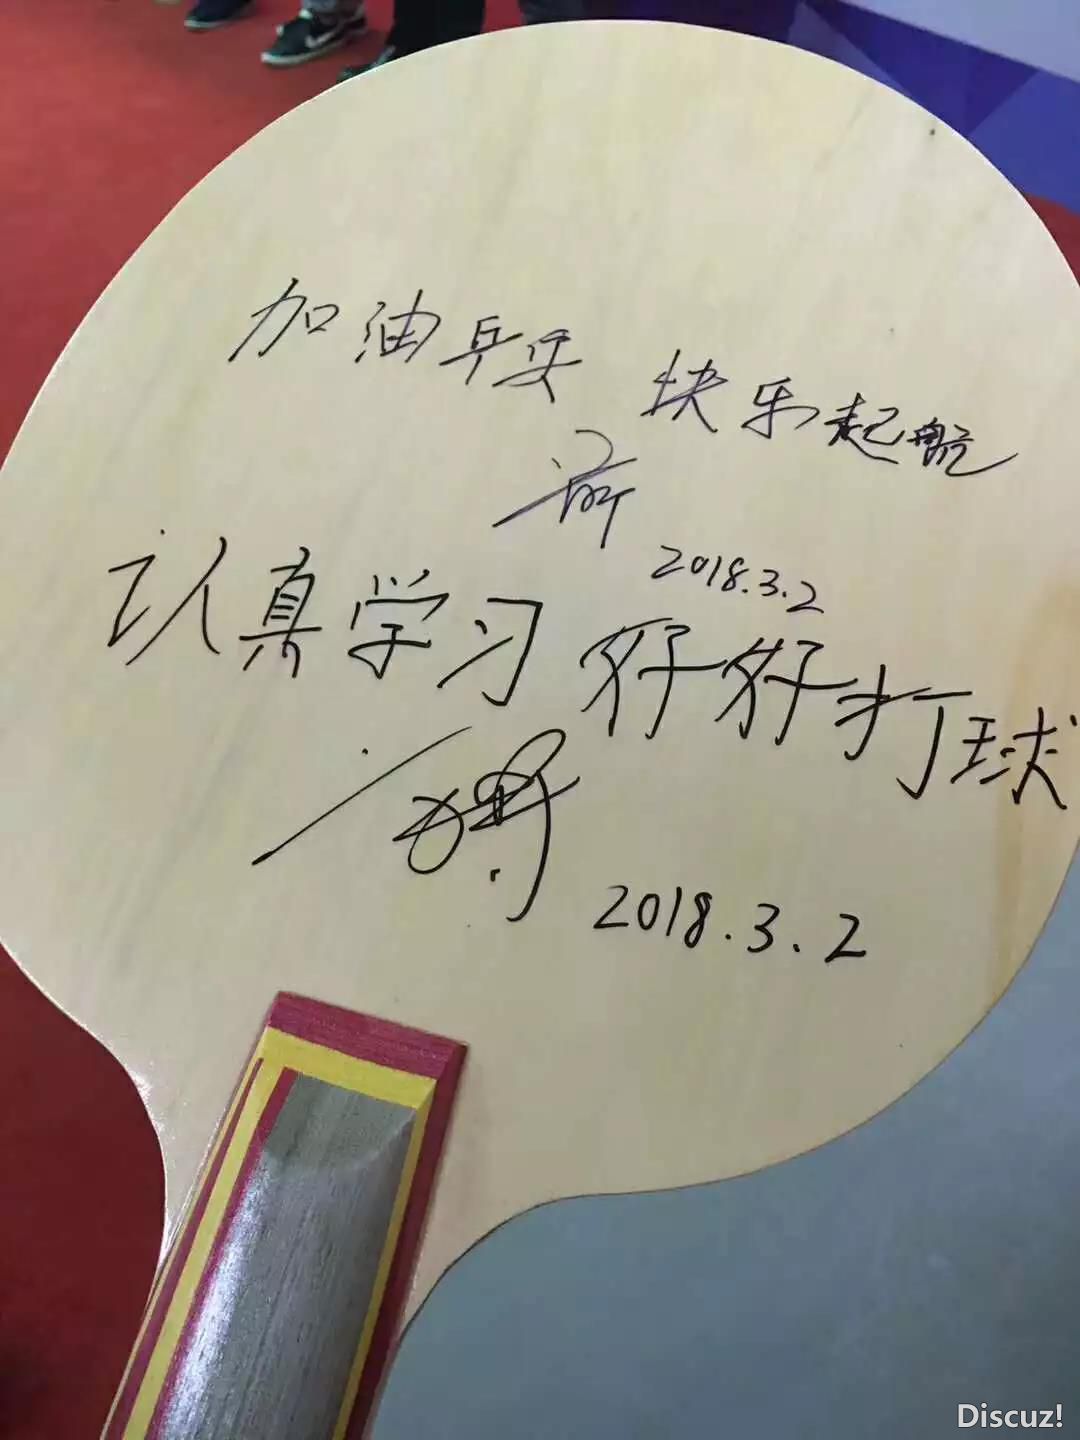 加油乒乓 快乐起航
2018.3.2
认真学习 好好打球
2018.3.2
Discuz!